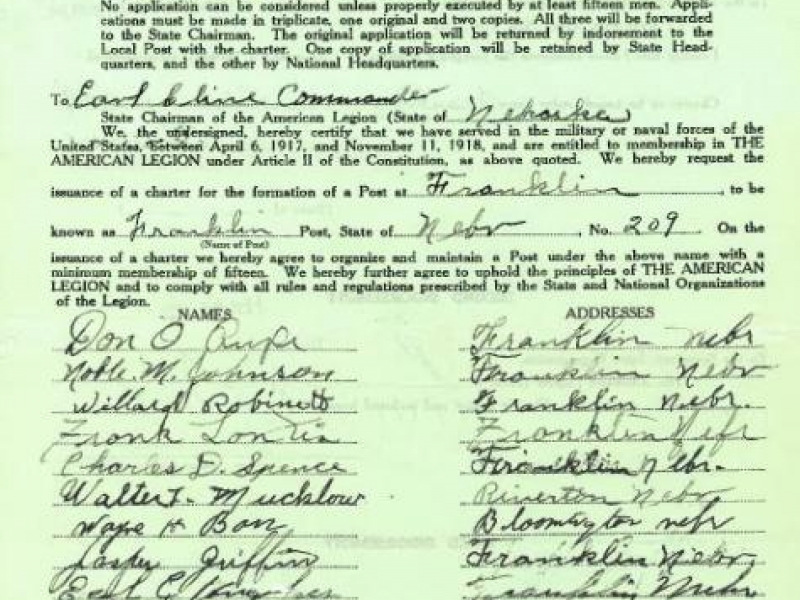 No application can be considered unless properly executed by at least fifteen men. Appli-
cations must be made in triplicate, one original and two copies. All three will be forwarded
to the State Chairman. The original application will be returned by indorsement to the
Local Post with the charter. One copy of application will be retained by State Head-
quarters, and the other by National Headquarters.
To Earl Cline Commander
State Chairman of the American Legion (State of Nebraska)
We, the undersigned, hereby certify that we have served in the military or naval forces of the
United States, Between April 6, 1917, and November 11, 1918, and are entitled to membership in THE
AMERICAN LEGION under Article II of the Constitution, as above quoted. We hereby request the
issuance of a charter for the formation of a Post at Franklin, to be
known as Franklin Post, State of Nebr, No. 209 On the
(Name of Post)
issuance of a charter we hereby agree to organize and maintain a Post under the above name with a
minimum membership of fifteen. We hereby further agree to uphold the principles of THE AMERICAN
LEGION and to comply with all rules and regulations prescribed by the State and National Organizations
of the Legion.
NAMES ADDRESSES
Don O Rupe Franklin Nebr
Noble M. Johnson Franklin Nebr
Willard Robinett Franklin Nebr.
Frank Franklin Nebr
Charles D. Spence Franklin Nebr.
Walter T. Mucklow Riverton Nebr
H Barr Bloomington nebr
Griffin Franklin Nebr.
Earl Franklin Nebr